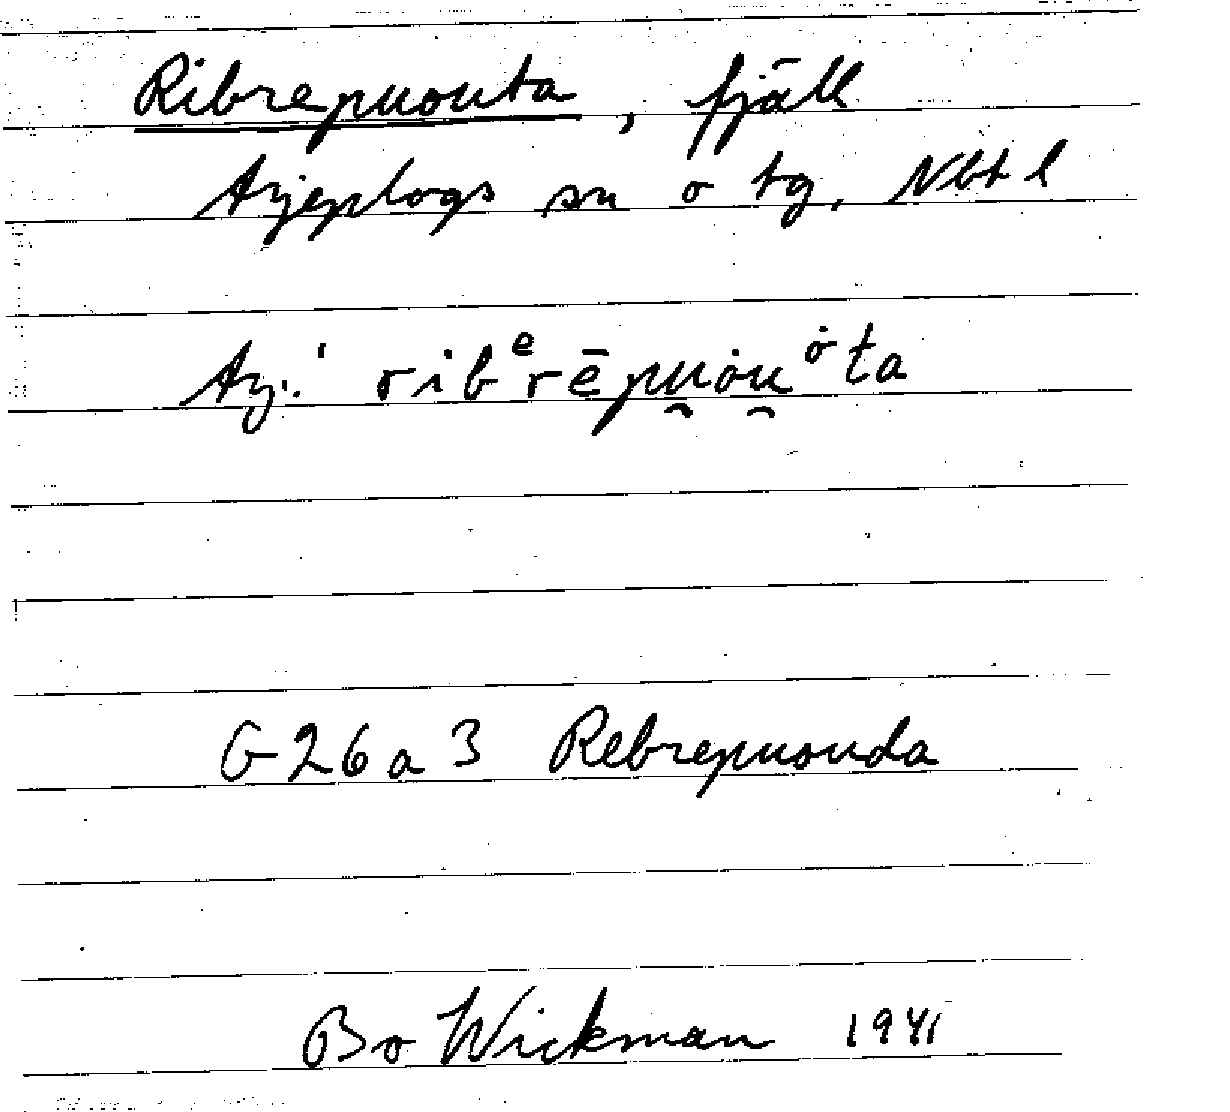 Ribrepuouta, fjäll
Arjeplogs sn o tg, Nbt l
Arj.: ' ribᵉrēpu̯ȯu̯ȯta
G26a3 Rebrepuouda
Bo Wickman 1941